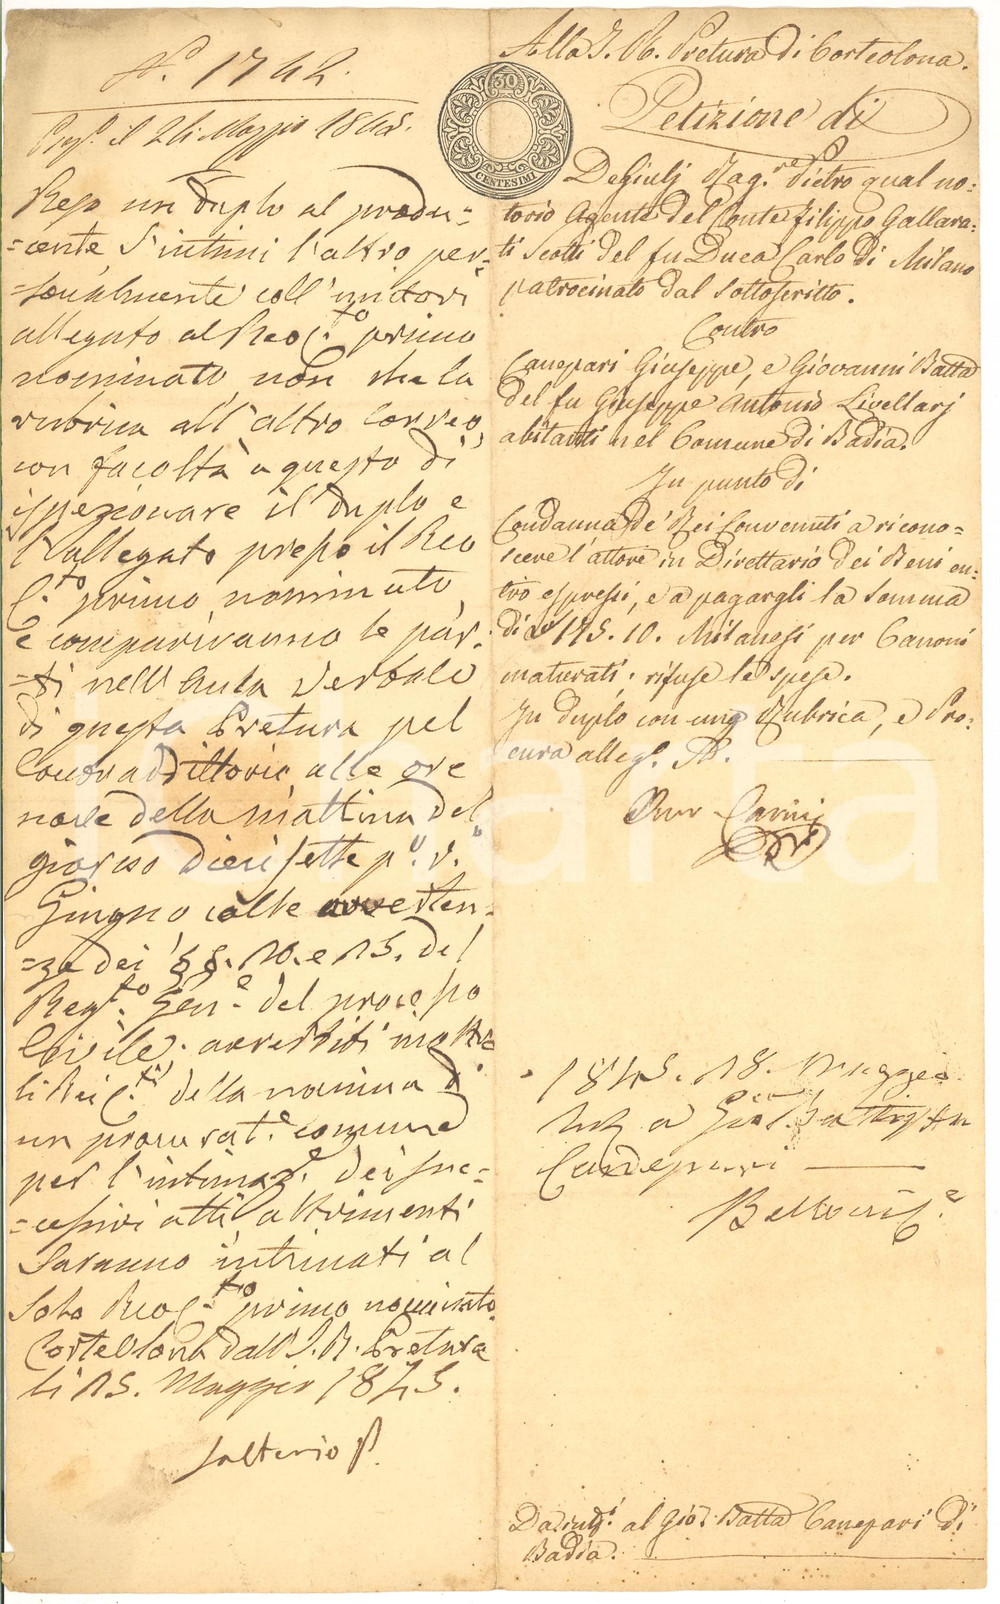 N. 1742.
Pres. il 24 Maggio 1845.
Reso un duplo al produ-
=cente S'intimi l'altro per-
=sonalmente coll'unitovi
allegato al Reo C.to primo
nominato non che la
rubrica all'altro Correo
con facoltà a questo di
ispezionare il duplo e
l'allegato presso il Reo
C.to primo nominato
e compariranno le par-
=ti nell'Aula Verbale
di questa Pretura pel
Contradditorio alle ore
nove della mattina del
giorno diecisette p.o v.o
Giugno colle avverten-
=ze dei §§. 10. e 15. del
Reg.to Gen.e del processo
Civile. avvertiti
li Rei C.ti della nomina di
un procurat.e comune
per l'intimaz.e dei suc-
=cessivi atti altrimenti
saranno intimati al
solo Reo C.to primo nominato
Corteolona dall'I. R. Pretura
li 15. Maggio 1845.
Salterio P.
Alla I. R. Pretura di Corteolona.
Petizione di
30
CENTESIMI
DeGiulj Rag.re Pietro qual no-
torio Agente del Conte Filippo Gallara-
ti Scotti del fu Duca Carlo di Milano
patrocinato dal sottoscritto.
Contro
Canepari Giuseppe, e Giovanni Batta
del fu Giuseppe Antonio Livellarj
abitanti nel Comune di Badia.
In punto di
Condanna de' Rei Convenuti a ricono-
scere l'attore in Direttario dei Beni en-
tro espressi, e a pagargli la somma
di 175. 10. Milanesi per Canoni
maturati. rifuse le spese.
In duplo con una Rubrica, e Pro-
cura alleg. A.
Avv Cavinj
1845. 18. Maggio
a Gio Battista
Canepari
Dasintj. al Gio. Batta Canepari di
Badia.